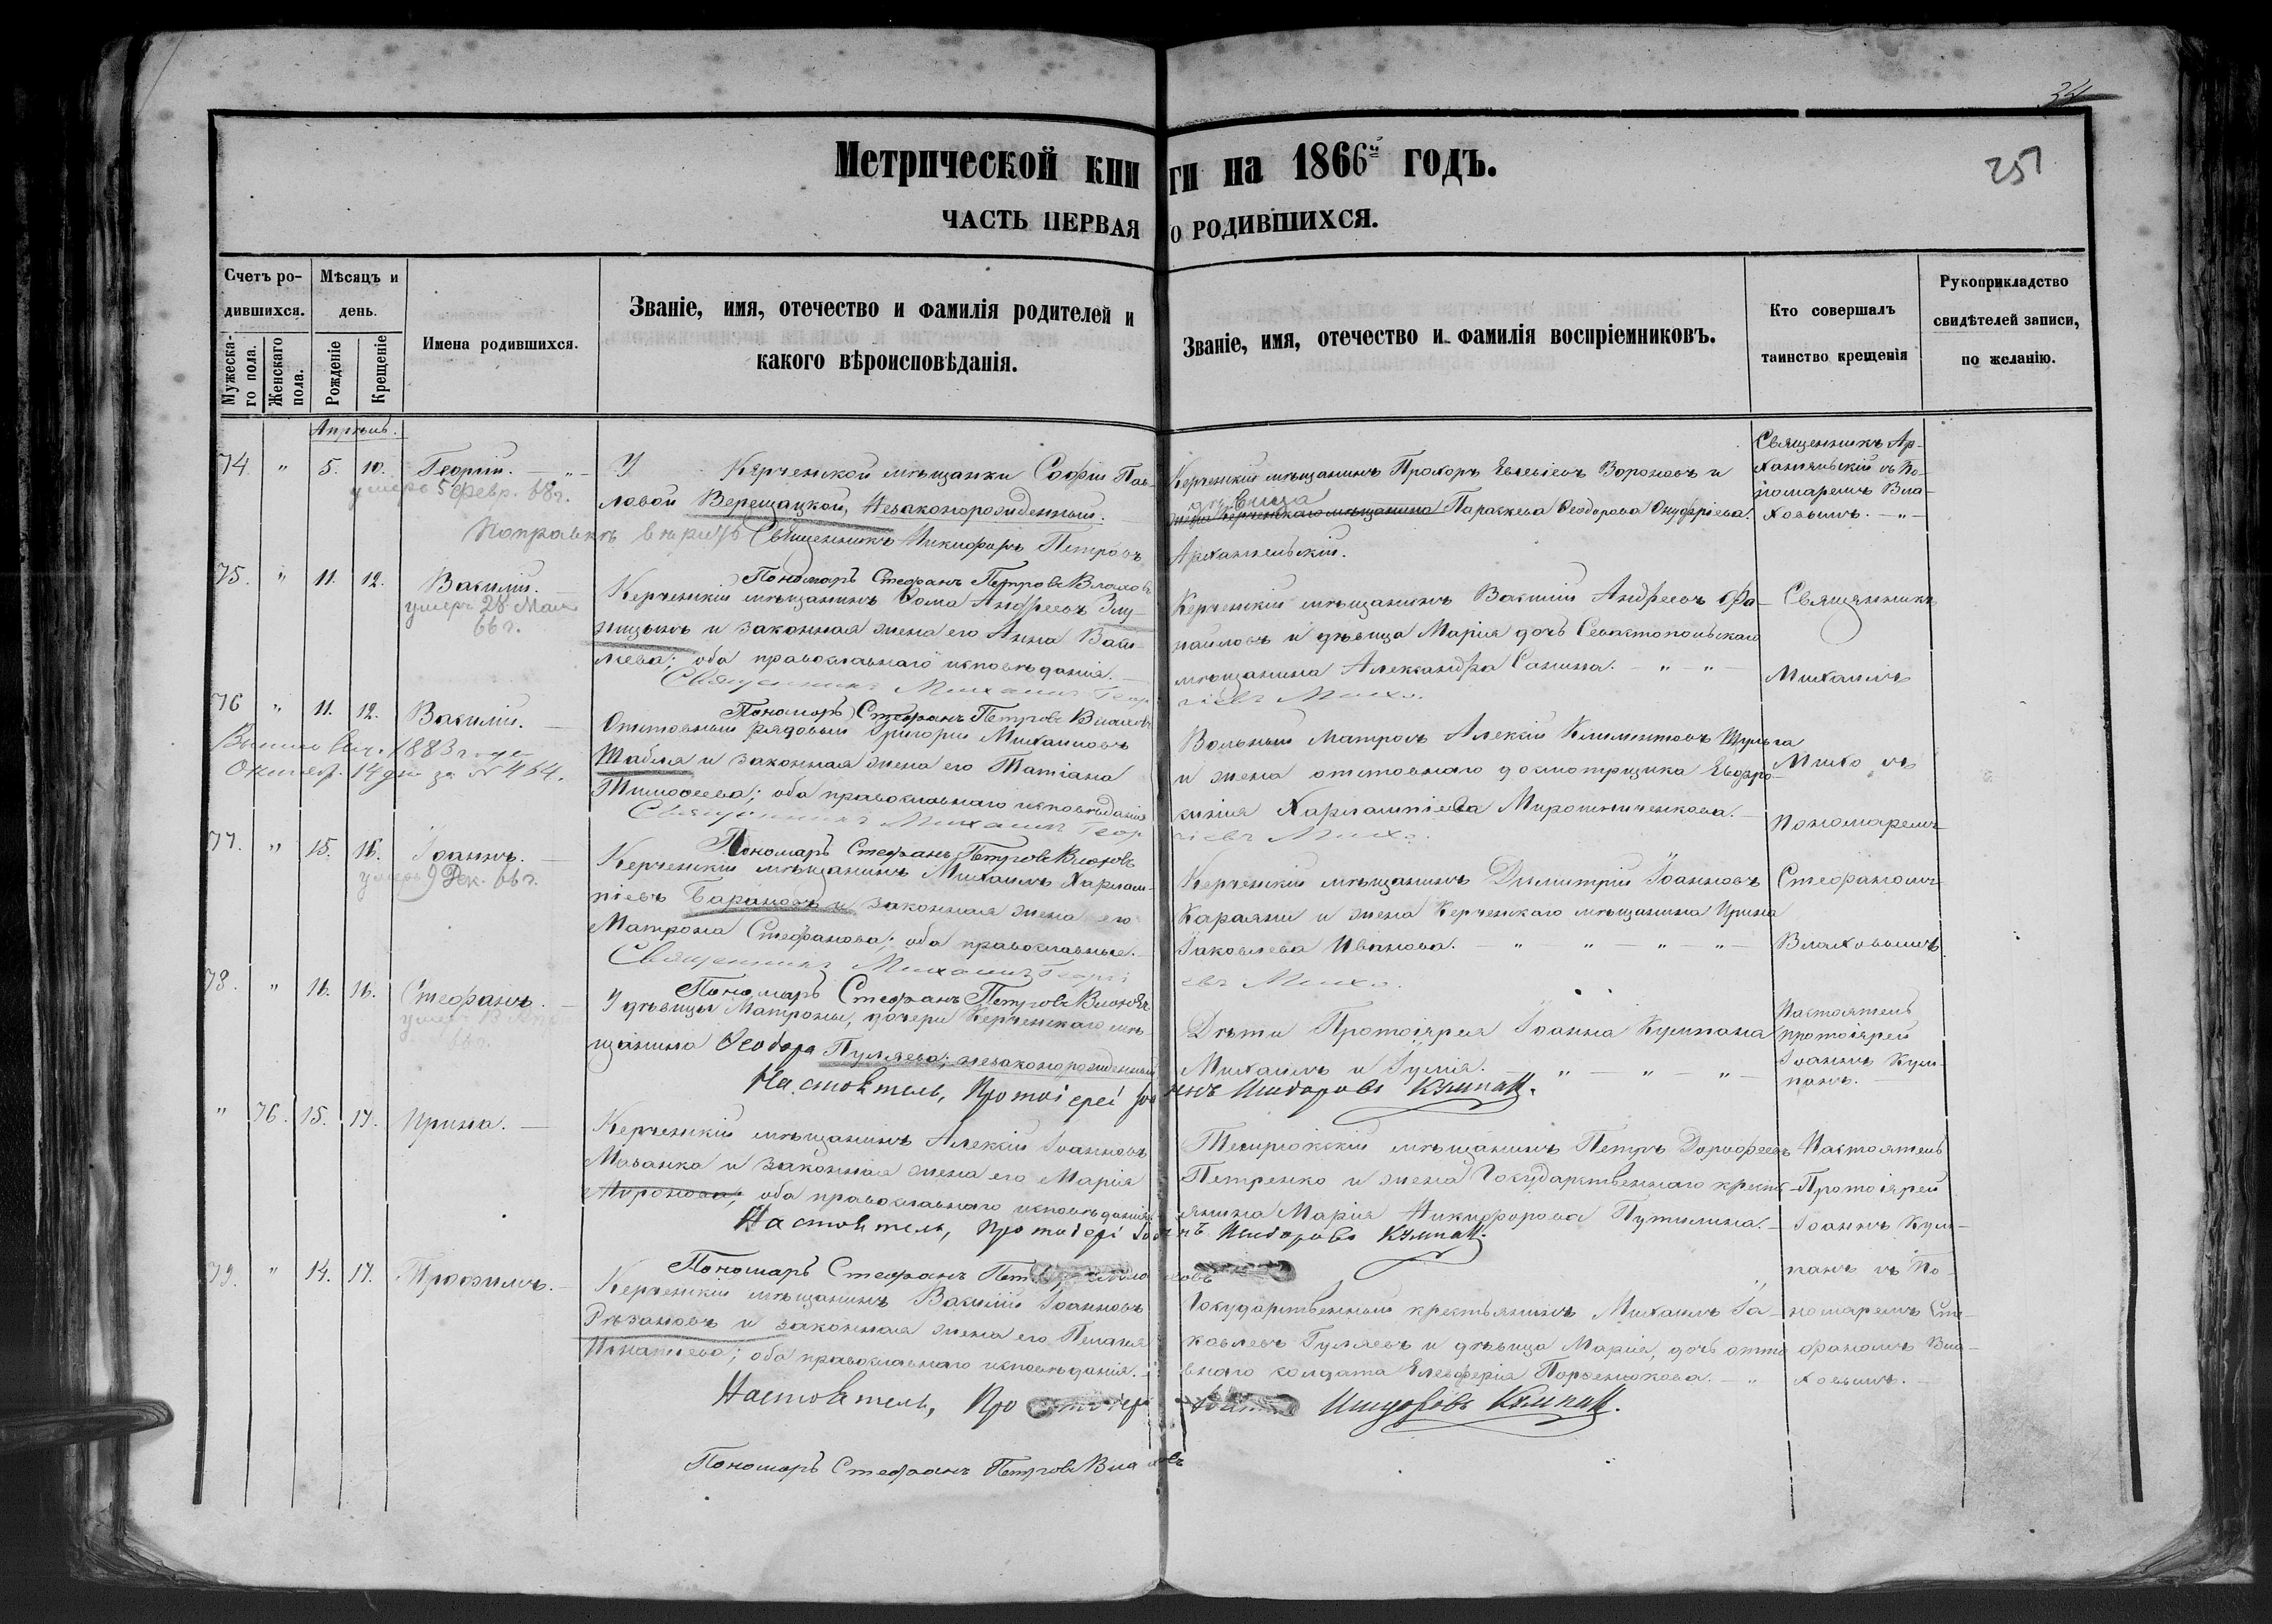 34
251
Метрической книги на 1866й годъ.
ЧАСТЬ ПЕРВАЯ О РОДИВШИХСЯ.
Счетъ родившихся.
Мужескаго пола.
Женскаго пола.
Мѣсяцъ и день.
Рожденіе
Крещеніе
Имена родившихся.
Званіе, имя, отечество и фамилія родителей и
какого вѣроисповѣданія.
Званіе, имя, отечество и фамилія воспріемниковъ.
Кто совершалъ
таинство крещенія
Рукоприкладство
свидѣтелей записи,
по желанію.
Апрѣль.
74. " 5. 10. Георгій. — " —
умеръ 5 февр. 68 г.
У Керченской мѣщанки Софіи Пав-
ловой Верещацкой, Незаконорожденный.
Священникъ Никифоръ Петровъ Архангельскій.
Пономарь Стефанъ Петровъ Влаховъ
Керченскій мѣщанинъ Прохоръ Вороновъ и
дѣвица
Параскева Феодорова Онуфріева.
Священникъ Ар-
хангельскій съ По-
номаремъ Вла-
ховымъ. — " —
75. " 11. 12. Василій. —
умеръ 28 Мая
66 г.
Керченскій мѣщанинъ Фома Андреевъ
и законная жена его Анна Васи-
ліева; оба православнаго исповѣданія. —
Священникъ Михаилъ Георгіевъ
Пономарь Стефанъ Петровъ Влаховъ
Керченскій мѣщанинъ Василій Андреевъ
и дѣвица Марія дочь Севастопольскаго
мѣщанина Александра Санина. — " — " —
Священникъ
Михаилъ
76 " 11. 12. Василій. —
1883 года
Октяб. 14 дня за № 464.
Отставный рядовый Григорій Михаиловъ
Шабля и законная жена его Татіана
Тимофеева; оба православнаго исповѣданія
Священникъ Михаилъ Георгіевъ
Пономарь Стефанъ Петровъ Влаховъ
Вольный матросъ Алексій Климентовъ Шульга
и жена отставнаго досмотрщика Евдо-
кінія Харлампіева Мирошниченкова. —
Пономаремъ
77. " 15. 16. Іоаннъ. —
умеръ 9 Дек. 66 г.
Керченскій мѣщанинъ Михаилъ Харлам-
піевъ Барановъ и законная жена его
Матрона Стефанова; оба православные. —
Священникъ Михаилъ Георгіевъ
Пономарь Стефанъ Петровъ Влаховъ
Керченскій мѣщанинъ Димитрій Іоанновъ
Караяни и жена Керченскаго мѣщанина Ирина
Іаковлева Иванова. — " " — " " —
Стефаномъ
Влаховымъ.
78. " 16. 16. Стефанъ. —
У дѣвицы Матроны, дочери Керченскаго мѣ-
щанина Феодора Пуляева; незаконорожденный
Настоятель, Протоіерей Іоаннъ Исидоровъ Кумпанъ.
Дѣти Протоіерея Іоанна Кумпана
Михаилъ и Іулія. — " — " — " —
Настоятель
протоіерей
Іоаннъ Кум-
панъ.
" 76. 15. 17. Ирина. —
Керченскій мѣщанинъ Алексій Іоанновъ
Мазанка и законная жена его Марія
Миронова; оба православнаго исповѣданія.
Настоятель, Протоіерей Іоаннъ Исидоровъ Кумпанъ.
Пономарь Стефанъ Петровъ
Темрюкскій мѣщанинъ Петръ Дорофеевъ
Петренко и жена Государственнаго кресть-
янина Марія Никифорова Путилина. —
Настоятель
Протоіерей
Іоаннъ Кум-
панъ съ По-
номаремъ Сте-
фаномъ Вла-
ховымъ. —
79. " 14. 17. Трофимъ. —
Керченскій мѣщанинъ Василій Іоанновъ
Рязановъ и законная жена его Пелагія
Игнатіева; оба православнаго исповѣданія.
Настоятель, Исидоровъ Кумпанъ.
Пономарь Стефанъ Петровъ Влаховъ
Государственный крестьянинъ Михаилъ Іа-
ковлевъ Гуляевъ и дѣвица Марія, дочь отста-
внаго солдата Елевферія Порсенкова. — "